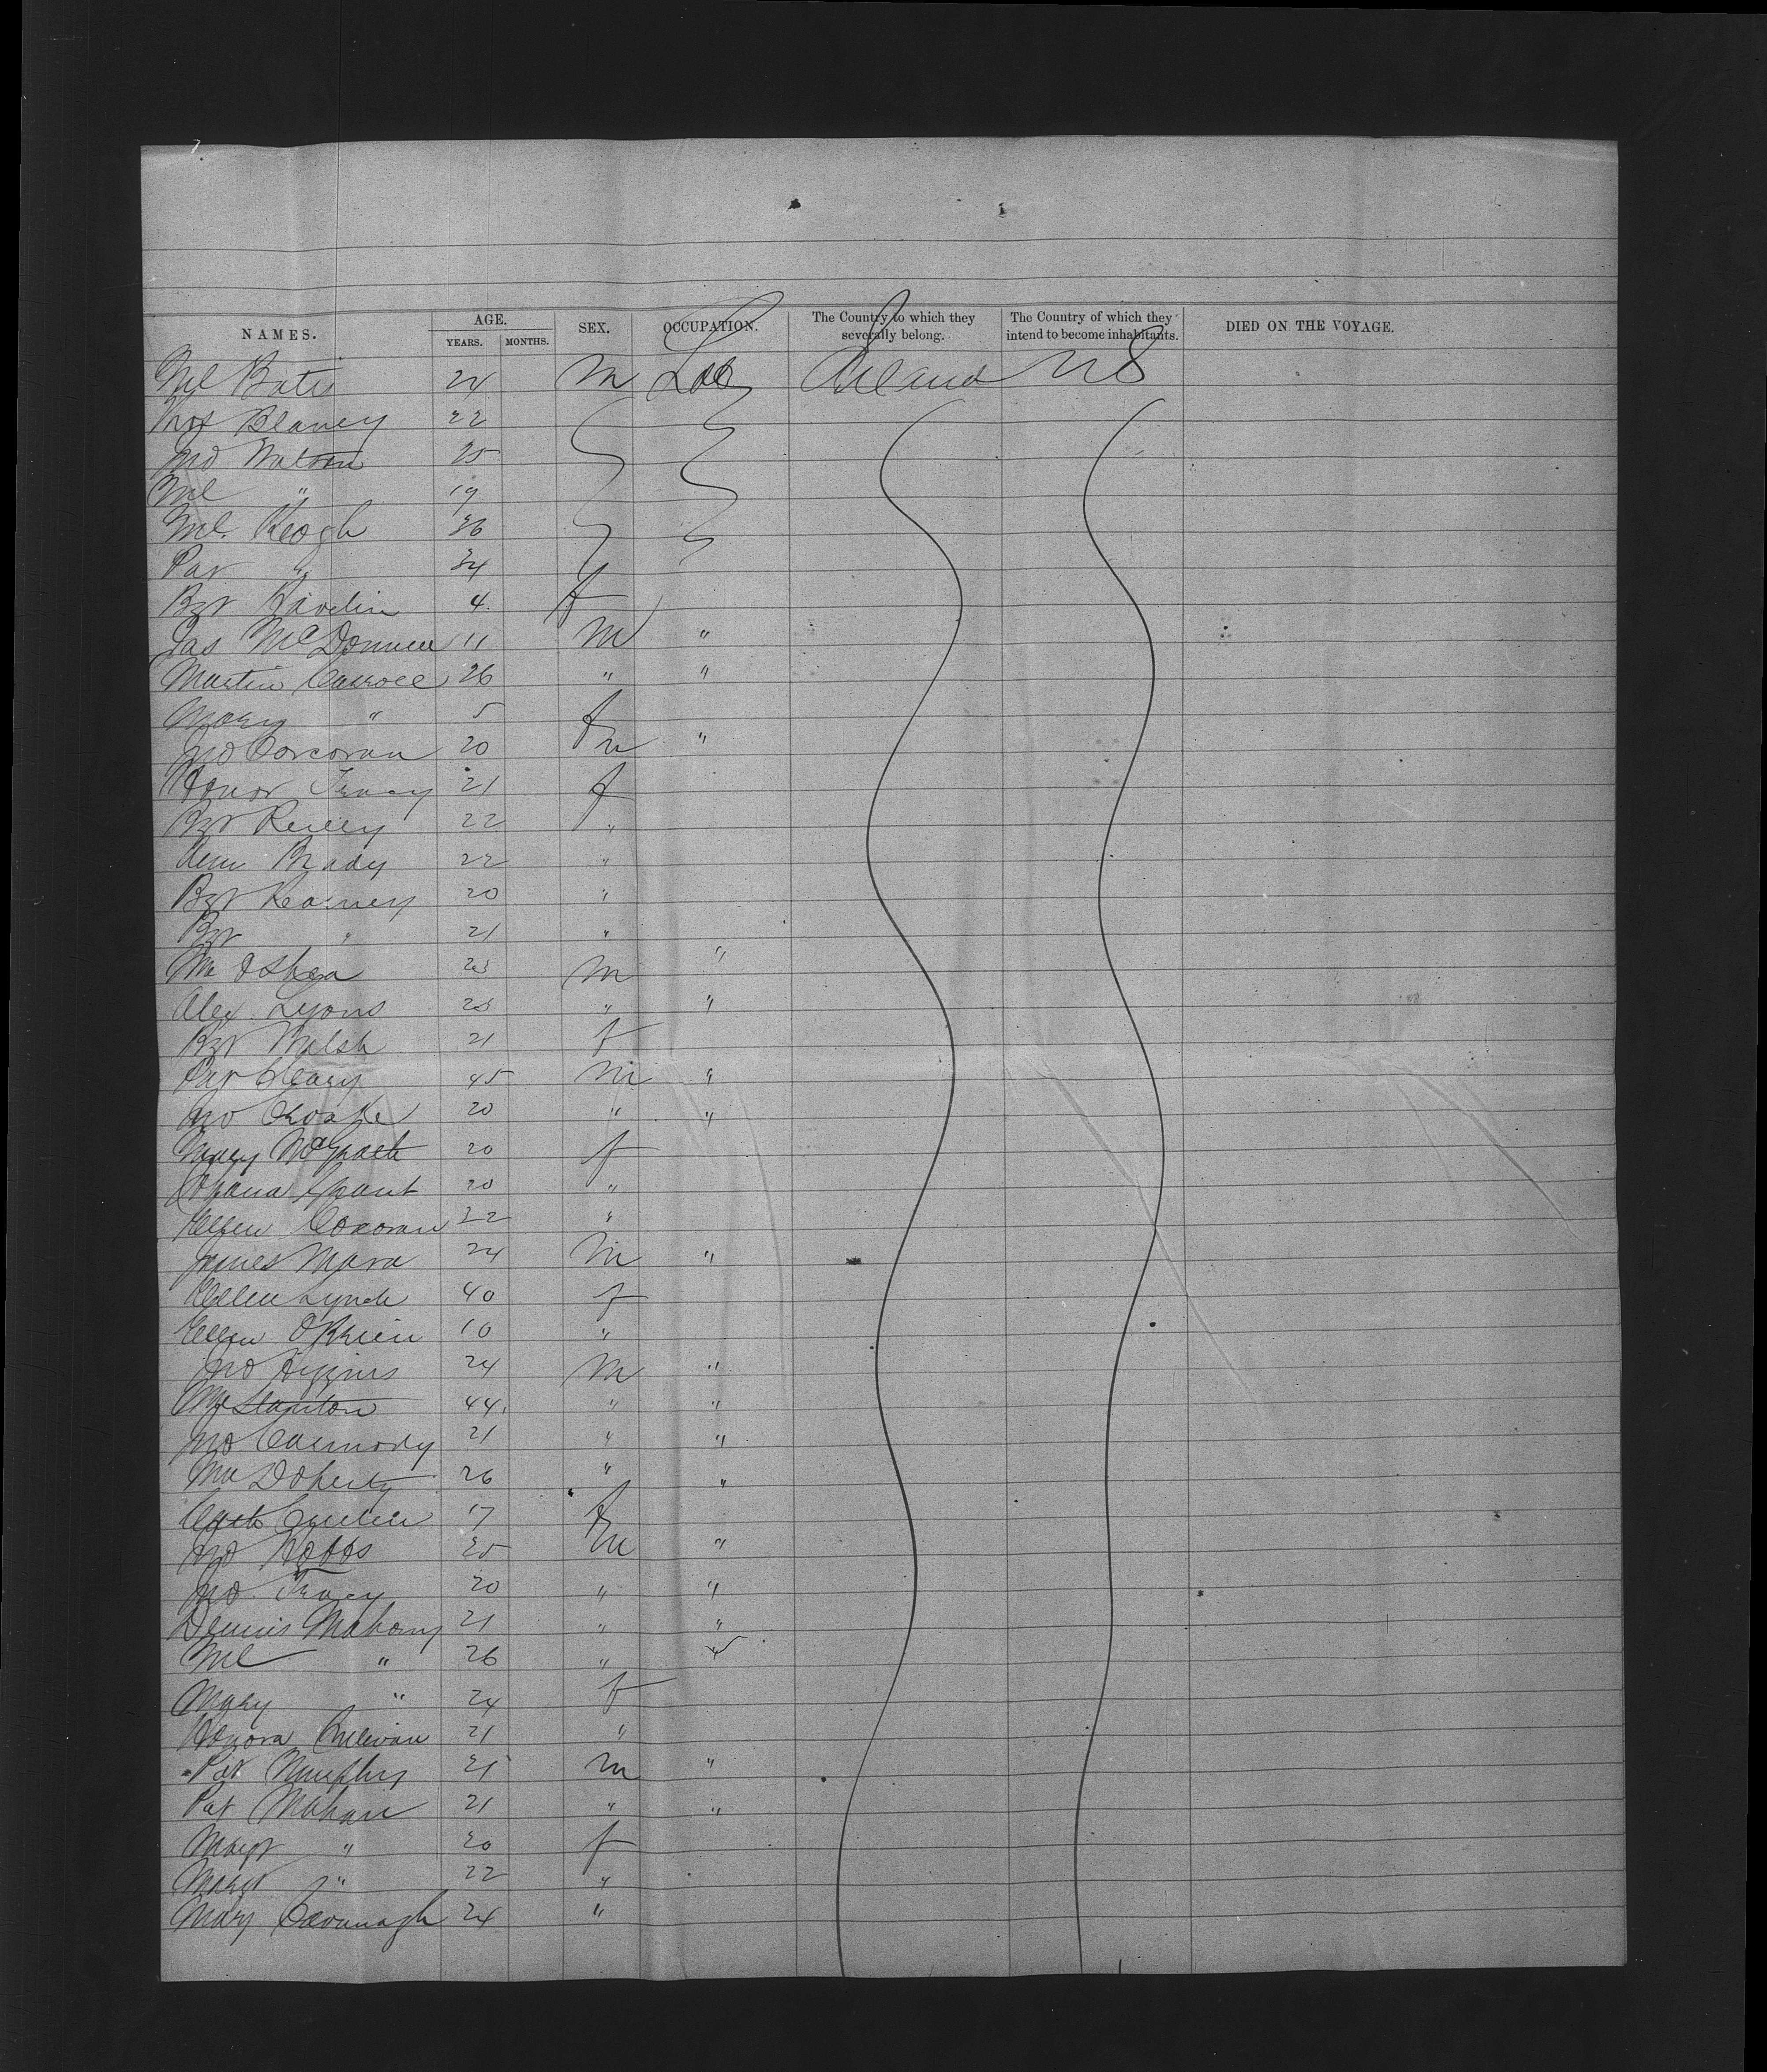 NAMES. AGE. SEX. OCCUPATION. The Country to which they severally belong. The Country of which they intend to become inhabitants. DIED ON THE VOYAGE.
YEARS. MONTHS.
Ml 24 m Lab Ireland US
Blaney 22
Jno 25
Ml " 19
Ml. Keogh 36
Pat " 34
Bgt 4 f
Jas McDonnell 11 m "
Martin Carroll 26 " "
Mary " 5 f
Jno Corcoran 20 m "
Honor Tracy 21 f
Bgt Reilly 22 "
Ann Brady 22 "
Bgt Kearney 20 "
Bgt " 21 "
OShea m "
Alex Lyons " "
Bgt Walsh 21 f
Pat Cleary 45 m "
Jno 20 " "
Mary McGrath 20 f
Johana Grant 20 "
Ellen Corcoran 22 "
James Mara 24 m "
Ellen Lynch 40 f
Ellen O'Brien 10 "
Jno Higgins 24 m "
Stanton 44. " "
Jno Carmody 21 " "
Doherty 26 " "
Cath 17 f
Jno Hobbs m "
Jno. Tracy 20 " "
Dennis Mahony 21 " "
Ml " 26 " "
Mary " 24 f
Honora Sullivan 21 "
Pat Murphy 21 m "
Pat Mahon 21 " "
Margt " 20 f
Margt " 22 "
Mary Cavanagh 24 "